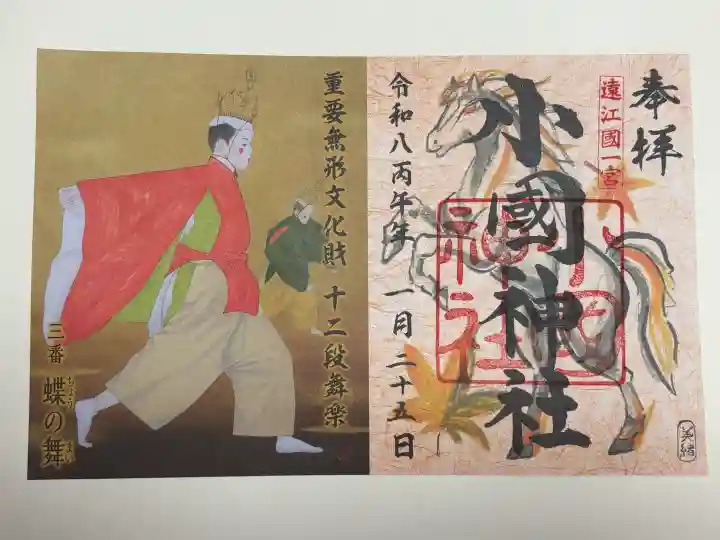 奉拝
遠江國一宮
小國神社
小國神社
令和八丙午年 一月二十五日
英緒
重要無形文化財 十二段舞楽
三番 蝶の舞
ちょう まい